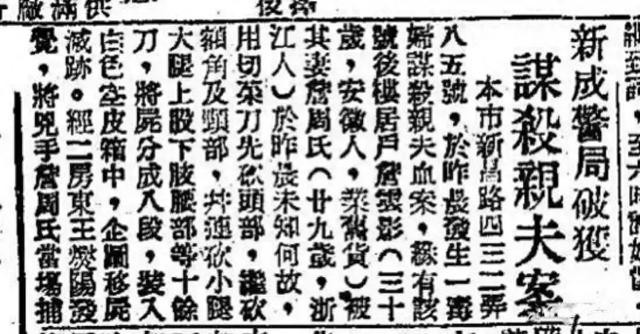 新成警局破獲
謀殺親夫案
本市新昌路四三二弄
八五號，於昨晨發生一毒
婦謀殺親夫血案，緣有該
號後樓居戶詹雲影（三十
歲，安徽人，業舊貨）被
其妻詹周氏（廿九歲，浙
江人）於昨晨未知何故，
用切菜刀先砍頭部，繼砍
額角及頸部，幷連砍小腿
大腿上股下肢腰部等十餘
刀，將屍分成八段，裝入
白色空皮箱中，企圖移屍
滅跡。經二房東王燮陽發
覺，將兇手詹周氏當場捕